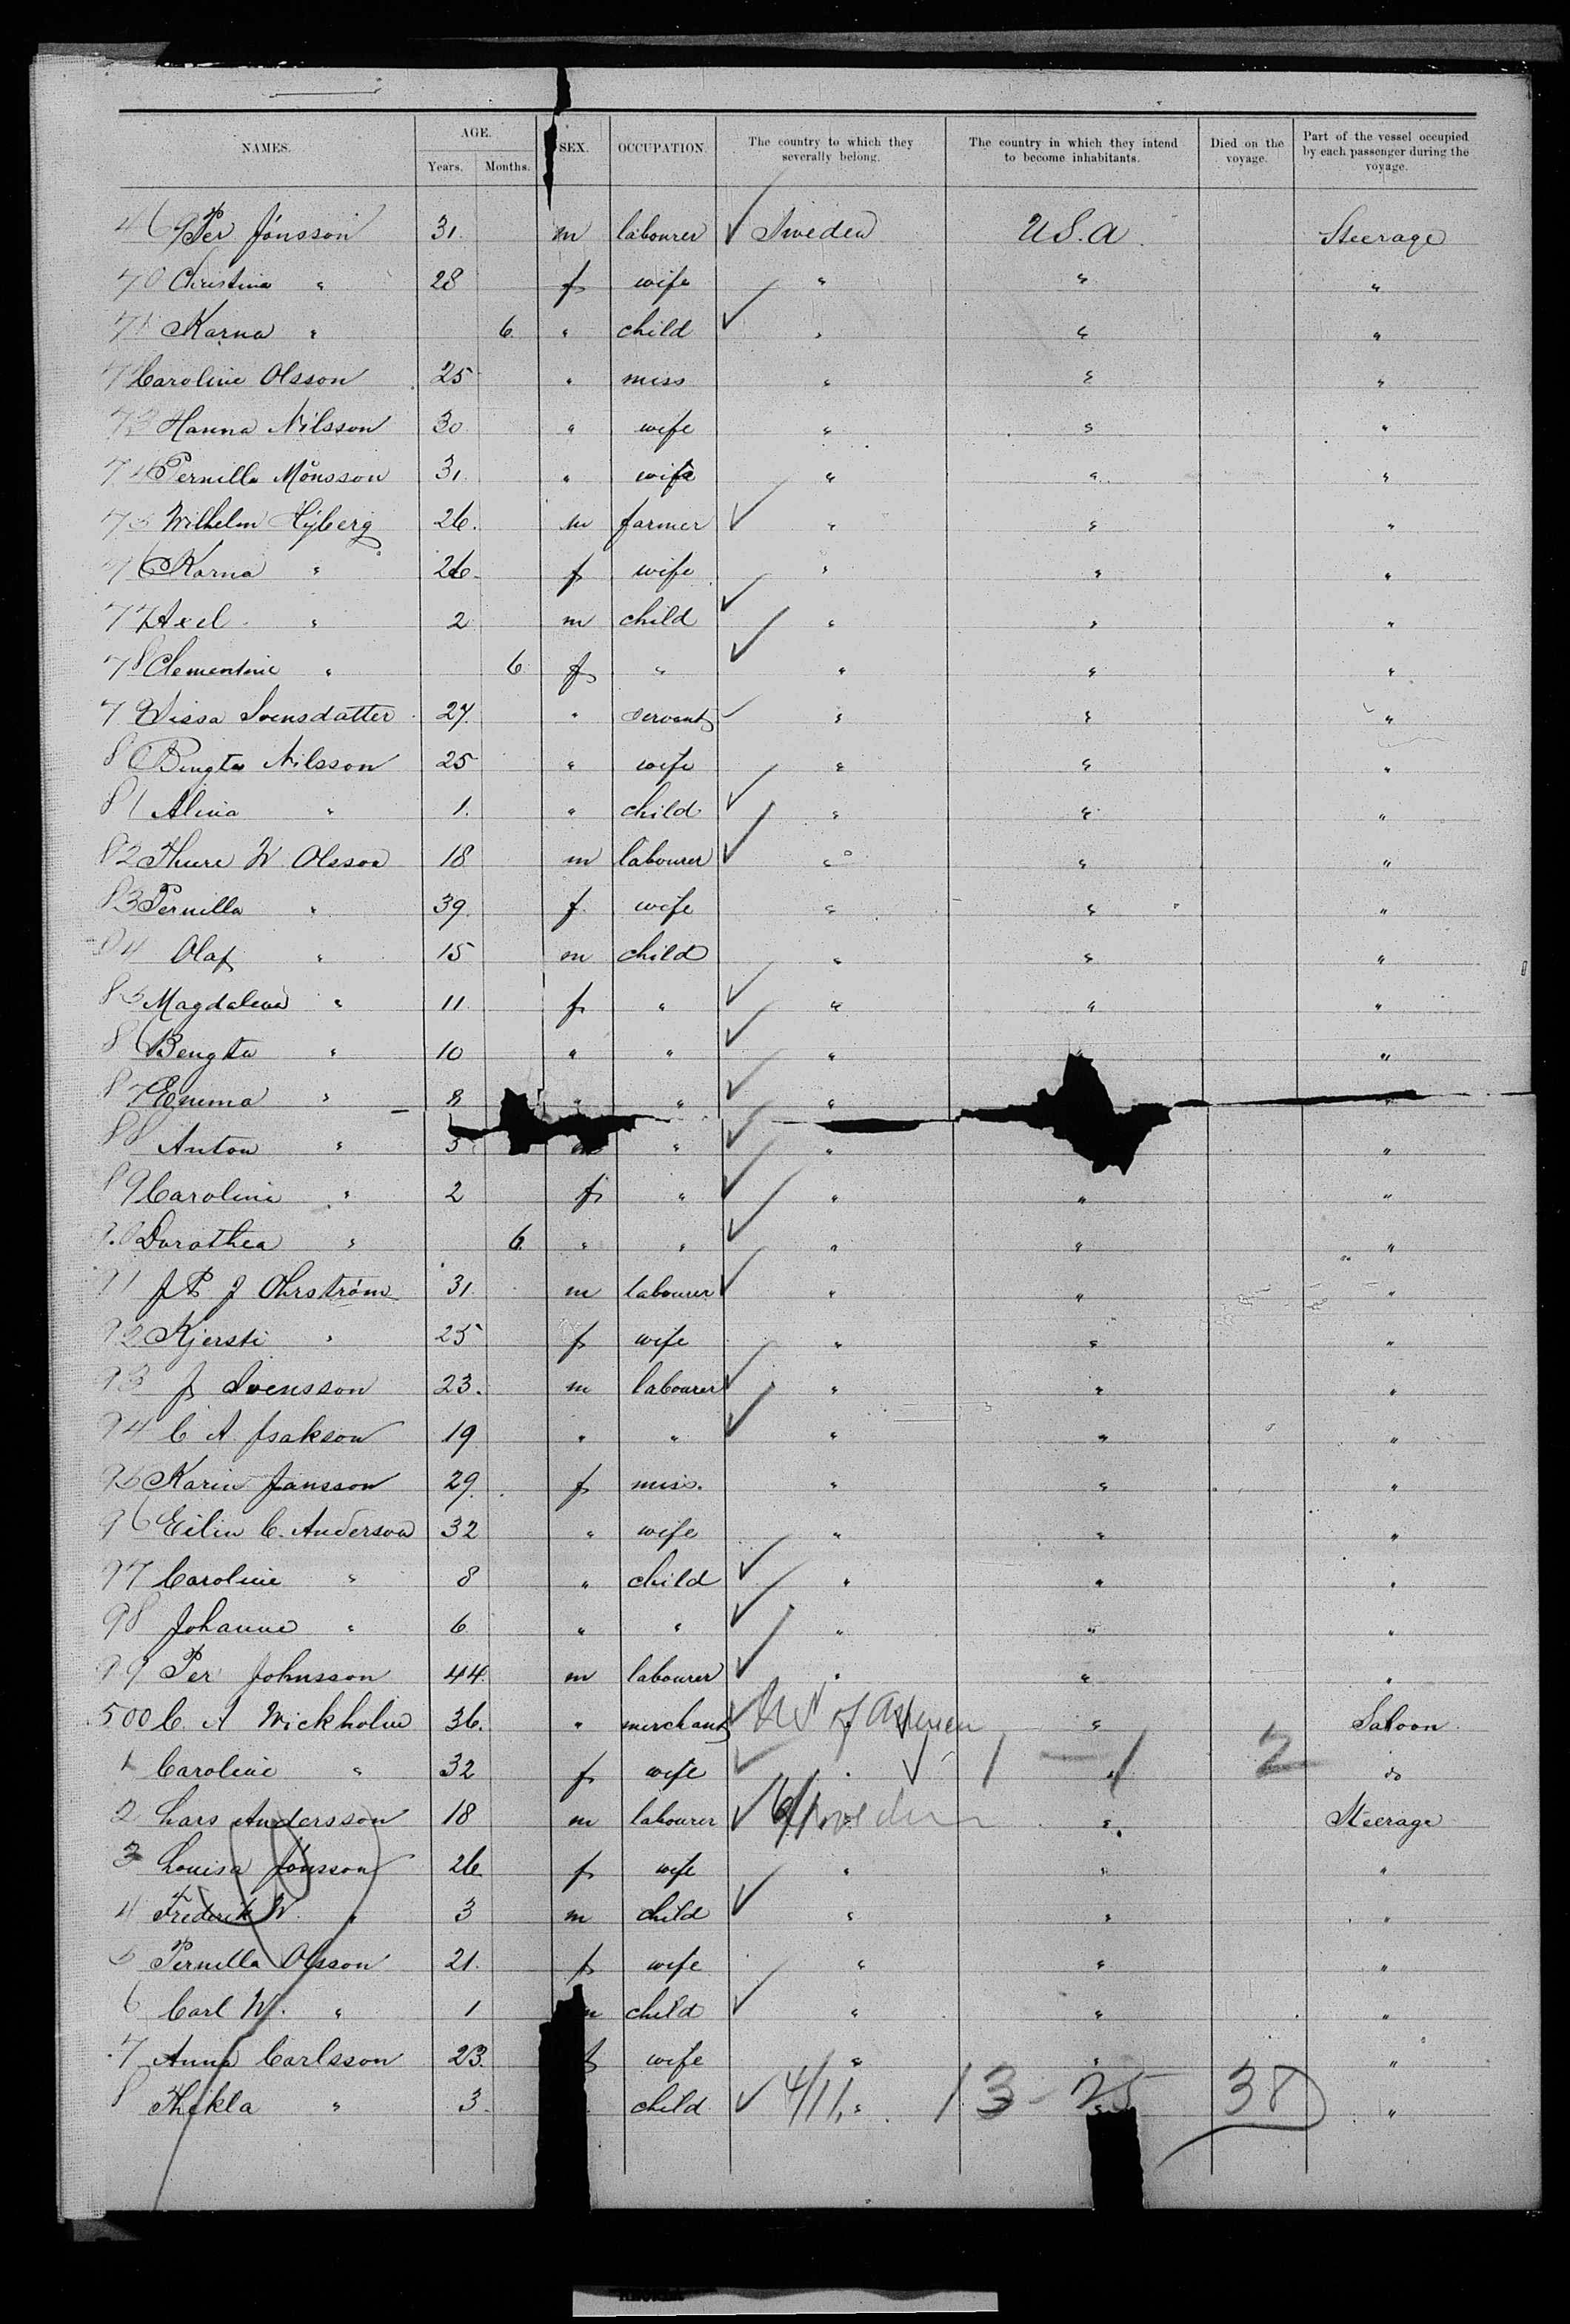 NAMES. AGE. Years. Months. SEX. OCCUPATION. The country to which they severally belong. The country in which they intend to become inhabitants. Died on the voyage. Part of the vessel occupied by each passenger during the voyage.
469 Per Jönsson 31. m labourer ✓ Sweden U.S.A. Steerage
70 Christina " 28 f wife " " "
71 Karna " 6 " child ✓ " " "
7 Caroline Olsson 25 " miss " " "
73 Hanna Nilsson 30 " wife " " "
74 Pernilla Månsson 31. " wife " " "
75 Wilhelm 26. m farmer ✓ " " "
76 Karna " 26. f wife " " "
77 Axel " 2 m child ✓ " " "
78 Clementine " 6 f " ✓ " " "
79 Sissa Svensdatter 27. " servant ✓ " " "
80 Bengta Nilsson 25 " wife " " "
81 Alina " 1. " child ✓ " " "
82 Thure W. Olsson 18 m labourer ✓ " " "
83 Pernilla " 39. f wife " " "
84 Olaf " 15 m child " " "
85 Magdalena " 11 f " ✓ " " "
86 Bengta " 10 " " ✓ " "
87 Emma " 8 " " ✓ " "
88 Anton " 5 m " ✓ " "
89 Caroline " 2 f " ✓ " " "
90 Dorothea " 6 " " ✓ " " "
91 J P J Öhrström 31. m labourer ✓ " " "
92 Kjersti " 25 f wife " " "
93 J Svensson 23. m labourer ✓ " " "
94 C A Isakson 19 " " ✓ " " "
95 Karin Jansson 29. f miss. " " "
96 Eilin C. Anderson 32 " wife " " "
97 Caroline " 8 " child ✓ " " "
98 Johanne " 6 " " ✓ " " "
99 Per Johnsson 44. m labourer ✓ " " "
500 C. A Wickholm 36. " merchant ✓ US of " Saloon
1 Caroline " 32 f wife ✓ " ✓ 1 — 1 " 2 do
2 Lars Andersson 18 m labourer ✓ 6/1 Sweden " Steerage
3 Louisa Jönsson 26 f wife " " "
4 Frederik W. " 3 m child ✓ " " "
5 Pernilla Olsson 21. f wife " " "
6 Carl W. " 1 m child ✓ " " "
7 Anna Carlsson 23. f wife " " "
8 Thekla " 3. child ✓ 4/11 " 13 - 25 38 "